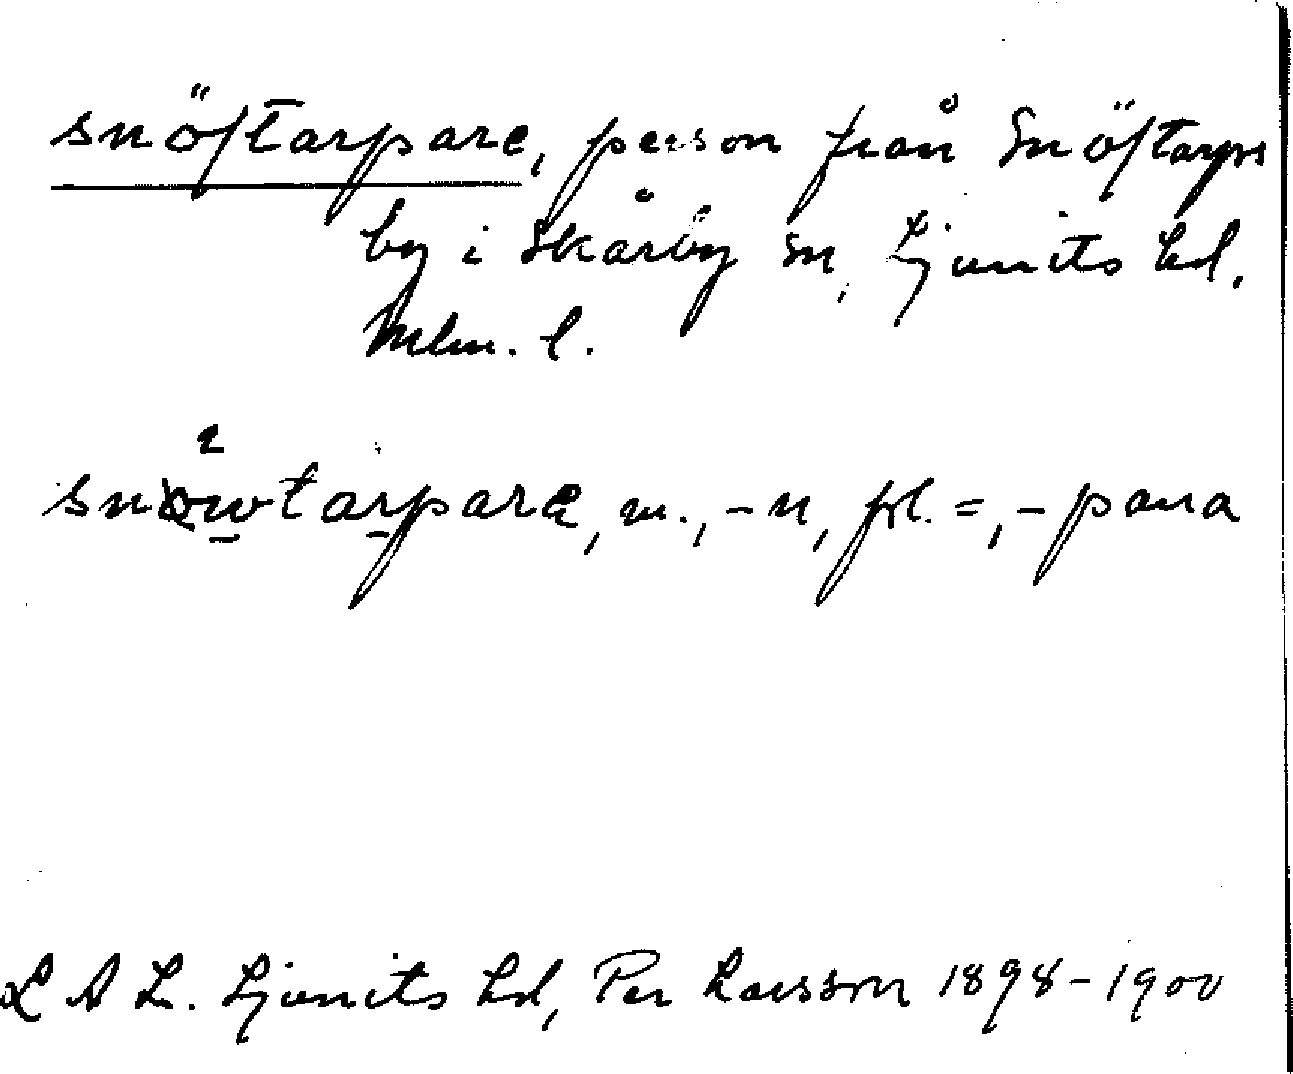 snöftarpare, person från Snöftarps
by i Skårby sn, Ljunits hd,
Mlm. l.
snöwtarpara, m., -n, pl. =, -parna
L A L. Ljunits hd, Per Larsson 1898-1900